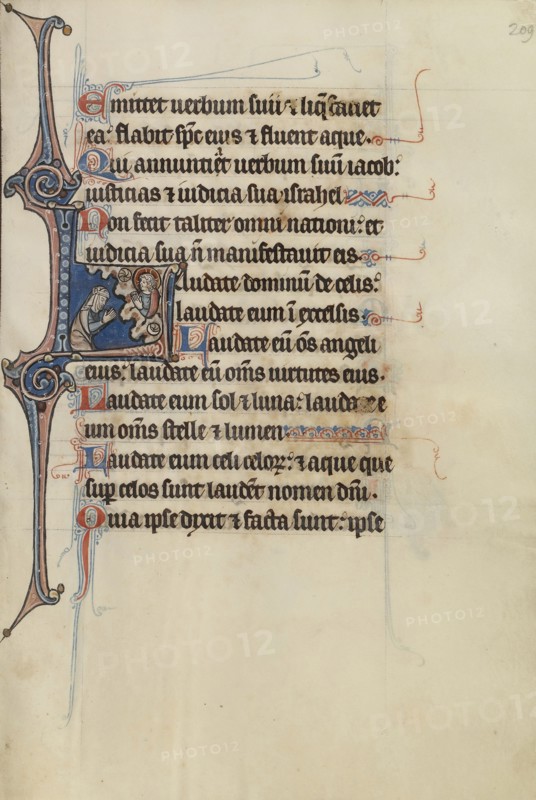 209
Emittet uerbum suū ⁊ liqͣfauet
ea: flabit sp̄c eius ⁊ fluent aque.
Qui annunciēt uerbum suū iacob:
iusticias ⁊ iudicia sua israhel
Non fecit taliter omni nationi: et
iudicia sua n̄ manifestauit eis.
Laudate dominū de celis:
laudate eum ī excelsis
Laudate eū ōs angeli
eius: laudate eū om̄s uirtutes eius.
Laudate eum sol ⁊ luna: laudate e
um om̄s stelle ⁊ lumen
Laudate eum celi celoꝝ: ⁊ aque que
suꝑ celos sunt laudēt nomen dn̄i.
Quia ipse dixit ⁊ facta sunt: ipse
PHOTO12